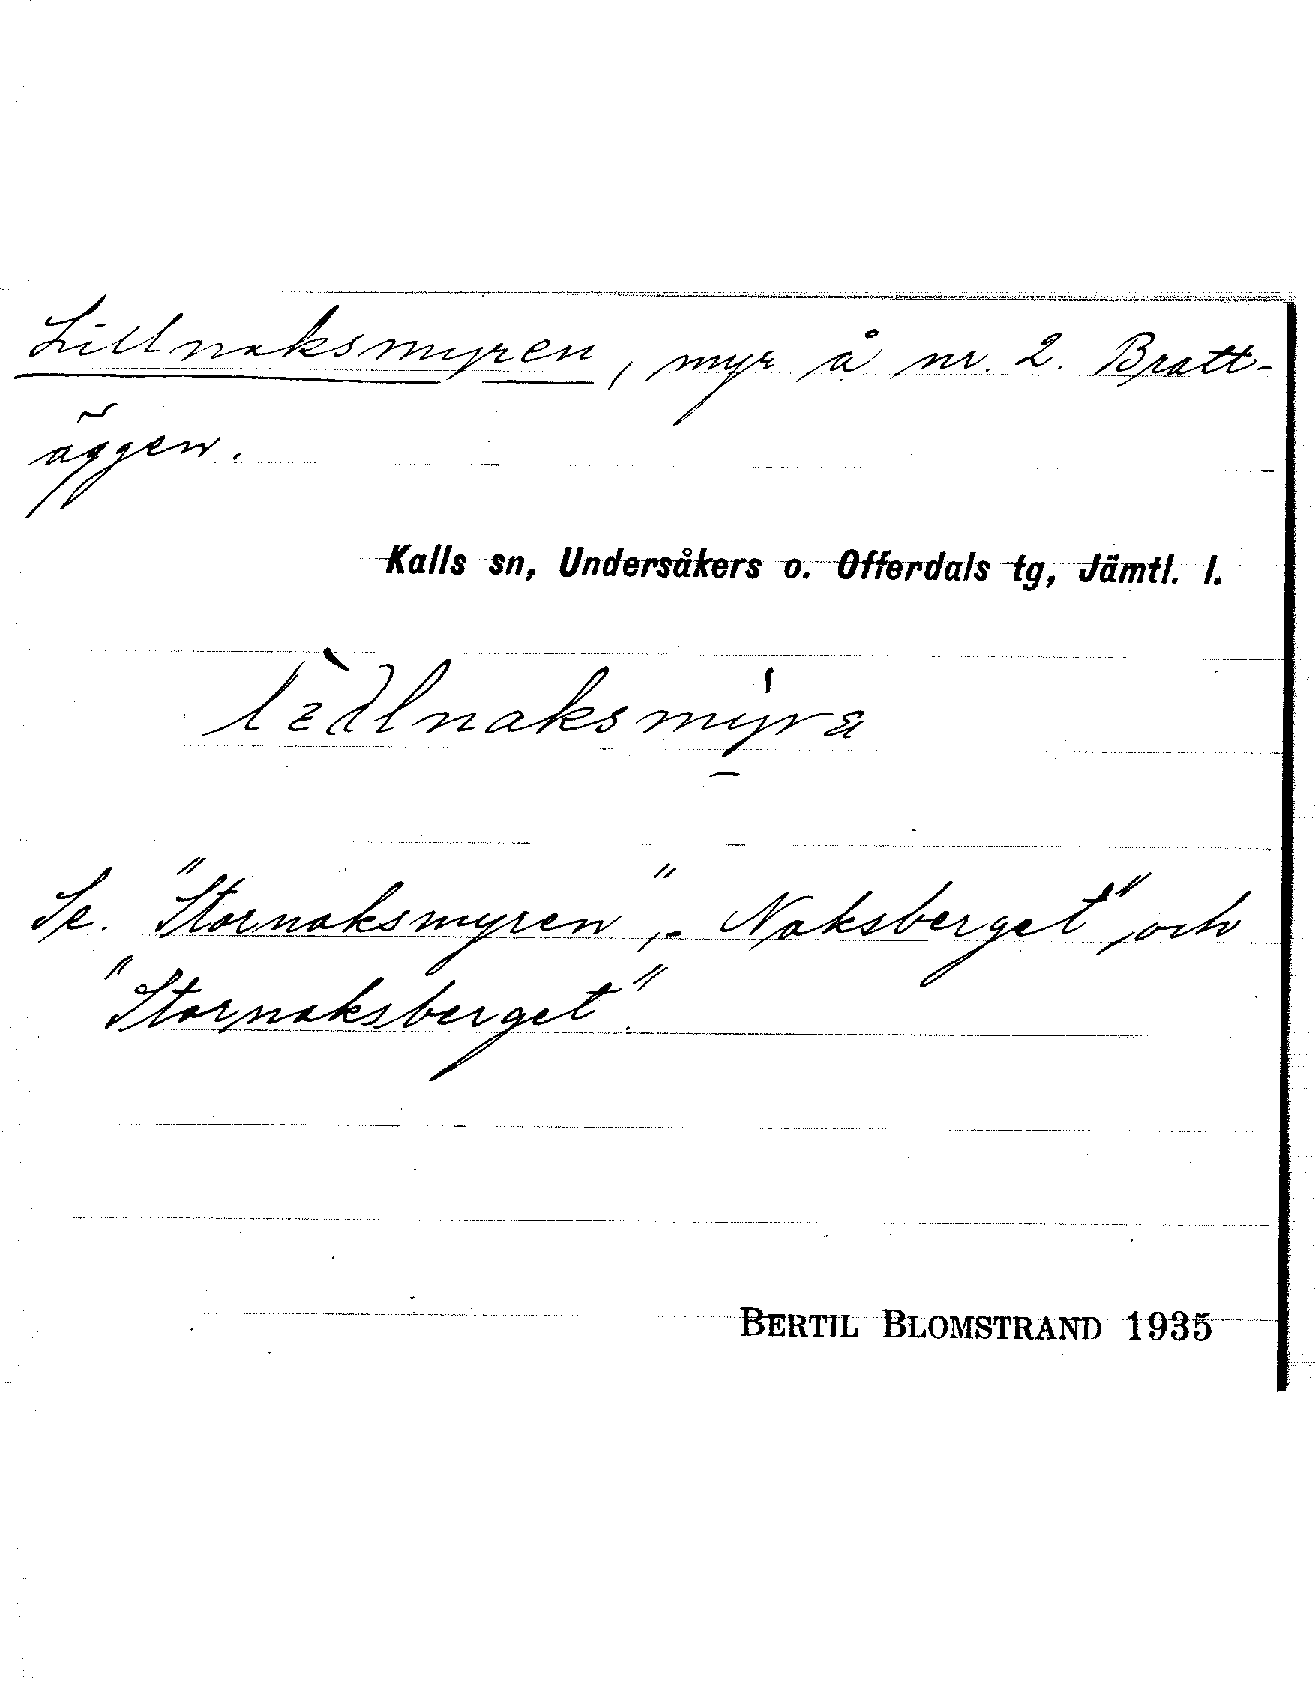 Lillnaksmyren, myr å nr. 2. Bratt-
äggen.
Kalls sn, Undersåkers o. Offerdals tg, Jämtl. l.
Se. "Stornaksmyren", Naksberget" och
"Stornaksberget".
BERTIL BLOMSTRAND 1935